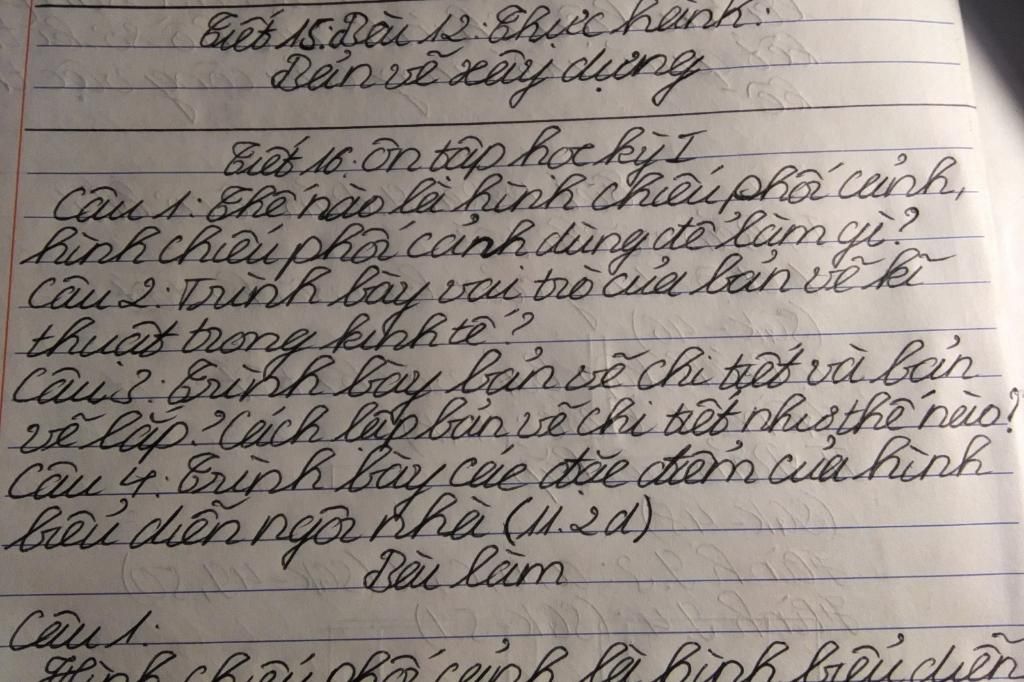 Tiết 15: Bài 12: Thực hành:
Bản vẽ xây dựng
Tiết 16: Ôn tập học kỳ I
Câu 1: Thế nào là hình chiếu phối cảnh,
hình chiếu phối cảnh dùng để làm gì?
Câu 2: Trình bày vai trò của bản vẽ kĩ
thuật trong kinh tế?
Câu 3: Trình bày bản vẽ chi tiết và bản
vẽ lắp? Cách lập bản vẽ chi tiết như thế nào?
Câu 4: Trình bày các đặc điểm của hình
biểu diễn ngôi nhà (11.2d)
Bài làm
Câu 1:
Hình chiếu phối cảnh là hình biểu diễn